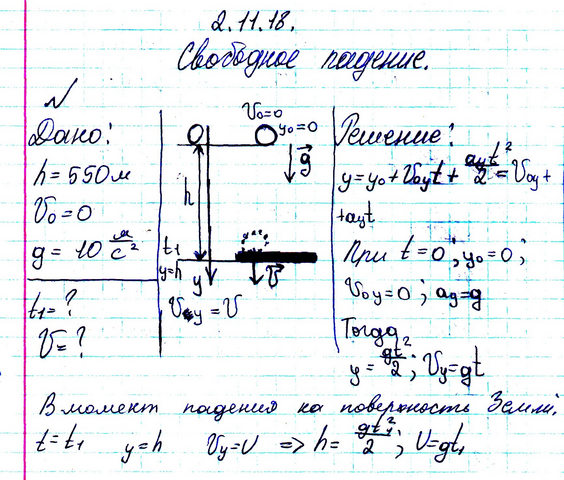 2.11.18.
Свободное падение.
Дано:
h = 550 м
V₀ = 0
g = 10 м/с²
t₁ = ?
V = ?
O
V₀=0
y₀=0
g⃗
h
t₁
y=h
y
V⃗
Vy = V
Решение:
y = y₀ + V₀yt + ayt²/2 = V₀y +
+ayt
При t = 0; y₀ = 0;
V₀y = 0; ay = g
Тогда
y = gt²/2; Vy = gt
В момент падения на поверхность Земли,
t = t₁ y = h Vy = V => h = gt₁²/2; V = gt₁